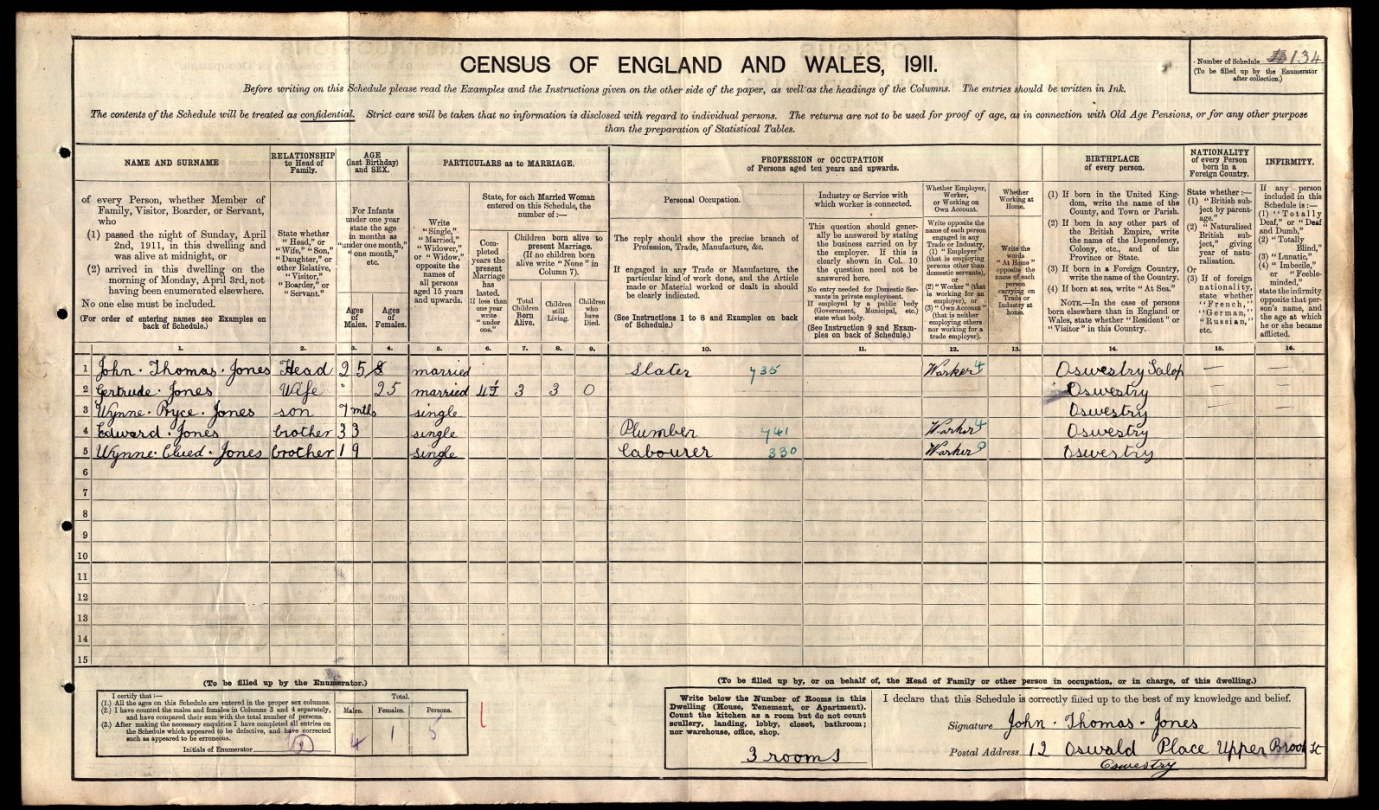 CENSUS OF ENGLAND AND WALES, 1911.
Number of Schedule 134
(To be filled up by the Enumerator after collection.)
Before writing on this Schedule please read the Examples and the Instructions given on the other side of the paper, as well as the headings of the Columns. The entries should be written in Ink.
The contents of the Schedule will be treated as confidential. Strict care will be taken that no information is disclosed with regard to individual persons. The returns are not to be used for proof of age, as in connection with Old Age Pensions, or for any other purpose
than the preparation of Statistical Tables.
NAME AND SURNAME
of every Person, whether Member of
Family, Visitor, Boarder, or Servant,
who
(1) passed the night of Sunday, April
2nd, 1911, in this dwelling and
was alive at midnight, or
(2) arrived in this dwelling on the
morning of Monday, April 3rd, not
having been enumerated elsewhere.
No one else must be included.
(For order of entering names see Examples on
back of Schedule.)
RELATIONSHIP
to Head of
Family.
State whether
"Head," or
"Wife," "Son,"
"Daughter," or
other Relative,
"Visitor,"
"Boarder," or
"Servant."
AGE
(last Birthday)
and SEX.
For Infants
under one year
state the age
in months as
"under one month,"
"one month,"
etc.
Ages of Males.
Ages of Females.
PARTICULARS as to MARRIAGE.
Write
"Single,"
"Married,"
"Widower,"
or "Widow,"
opposite the
names of
all persons
aged 15 years
and upwards.
State, for each Married Woman
entered on this Schedule, the
number of:—
Completed years the present Marriage has lasted. If less than one year write "under one."
Children born alive to
present Marriage.
(If no children born
alive write "None" in
Column 7).
Total Children Born Alive.
Children still Living.
Children who have Died.
PROFESSION or OCCUPATION
of Persons aged ten years and upwards.
Personal Occupation.
The reply should show the precise branch of
Profession, Trade, Manufacture, &c.
If engaged in any Trade or Manufacture, the
particular kind of work done, and the Article
made or Material worked or dealt in should
be clearly indicated.
(See Instructions 1 to 8 and Examples on back
of Schedule.)
Industry or Service with
which worker is connected.
This question should generally be answered by stating
the business carried on by
the employer. If this is
clearly shown in Col. 10
the question need not be
answered here.
No entry needed for Domestic Servants in private employment.
If employed by a public body
(Government, Municipal, etc.)
state what body.
(See Instruction 9 and Examples on back of Schedule.)
Whether Employer,
Worker,
or Working on
Own Account.
Write opposite the
name of each person
engaged in any
Trade or Industry,
(1) "Employer"
(that is employing
persons other than
domestic servants),
or
(2) "Worker" (that
is working for an
employer), or
(3) "Own Account"
(that is neither
employing others
nor working for a
trade employer).
Whether
Working at
Home.
Write the words "At Home" opposite the name of each person carrying on Trade or Industry at home.
BIRTHPLACE
of every person.
(1) If born in the United Kingdom, write the name of the
County, and Town or Parish.
(2) If born in any other part of
the British Empire, write
the name of the Dependency,
Colony, etc., and of the
Province or State.
(3) If born in a Foreign Country,
write the name of the Country.
(4) If born at sea, write "At Sea."
NOTE.—In the case of persons
born elsewhere than in England or
Wales, state whether "Resident" or
"Visitor" in this Country.
NATIONALITY
of every Person
born in a
Foreign Country.
State whether:—
(1) "British subject by parentage."
(2) "Naturalised British subject," giving year of naturalisation.
Or
(3) If of foreign nationality, state whether "French," "German," "Russian," etc.
INFIRMITY.
If any person
included in this
Schedule is:—
(1) "Totally Deaf," or "Deaf and Dumb,"
(2) "Totally Blind,"
(3) "Lunatic,"
(4) "Imbecile," or "Feeble-minded,"
state the infirmity
opposite that person's name, and
the age at which
he or she became
afflicted.
1. 2. 3. 4. 5. 6. 7. 8. 9. 10. 11. 12. 13. 14. 15. 16.
1 John · Thomas · Jones Head 25 married Slater 735 Worker 4 Oswestry Salop — —
2 Gertrude · Jones Wife 25 married 4½ 3 3 0 Oswestry — —
3 Wynne · Bryce · Jones son 7 mths single Oswestry — —
4 Edward · Jones brother 33 single Plumber 741 Worker 4 Oswestry
5 Wynne · Jones brother 19 single Labourer 330 Worker Oswestry
6
7
8
9
10
11
12
13
14
15
(To be filled up by the Enumerator.)
I certify that:—
(1.) All the ages on this Schedule are entered in the proper sex columns.
(2.) I have counted the males and females in Columns 3 and 4 separately,
and have compared their sum with the total number of persons.
(3.) After making the necessary enquiries I have completed all entries on
the Schedule which appeared to be defective, and have corrected
such as appeared to be erroneous.
Initials of Enumerator
Total.
Males. Females. Persons.
4 1 5
(To be filled up by, or on behalf of, the Head of Family or other person in occupation, or in charge, of this dwelling.)
Write below the Number of Rooms in this
Dwelling (House, Tenement, or Apartment).
Count the kitchen as a room but do not count
scullery, landing, lobby, closet, bathroom;
nor warehouse, office, shop.
3 rooms
I declare that this Schedule is correctly filled up to the best of my knowledge and belief.
Signature John · Thomas · Jones
Postal Address 12 Oswald Place Upper Brook St
Oswestry